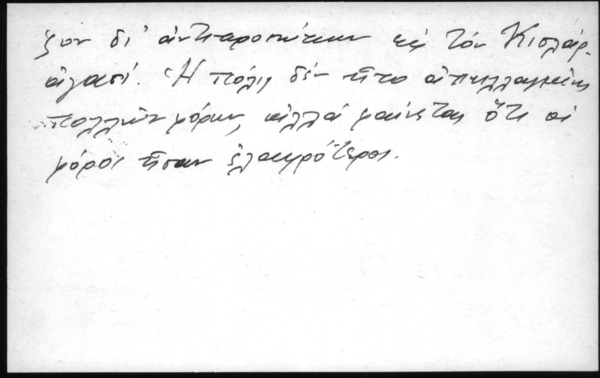 ζον δι' ἀντιπροσώπων εἰς τόν Κισλάρ-
ἀγασί. Ἡ πόλις δέν ἦτο ἀπηλλαγμένη
πολλῶν φόρων, ἀλλά φαίνεται ὅτι οἱ
φόροι ἦσαν ἐλαφρότεροι.